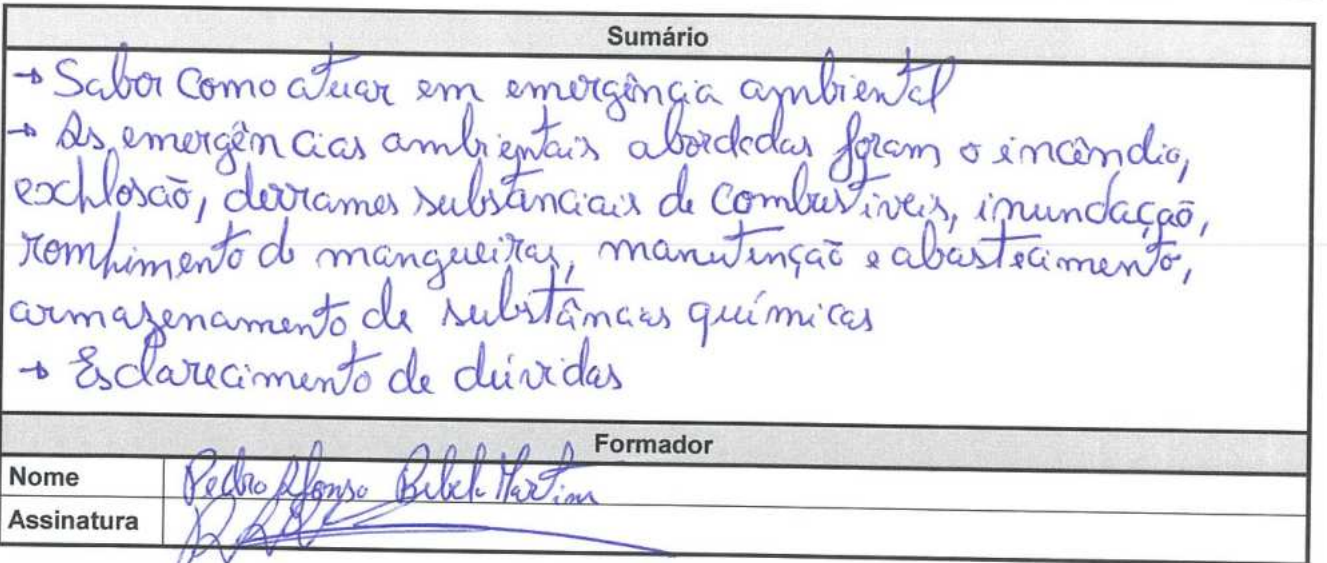 Sumário
→ Saber como atuar em emergência ambiental
→ As emergências ambientais abordadas foram o incêndio,
explosão, derrames substanciais de combustíveis, inundação,
rompimento de mangueiras, manutenção e abastecimento,
armazenamento de substâncias químicas
→ Esclarecimento de dúvidas
Formador
Nome Pedro Afonso Martins
Assinatura